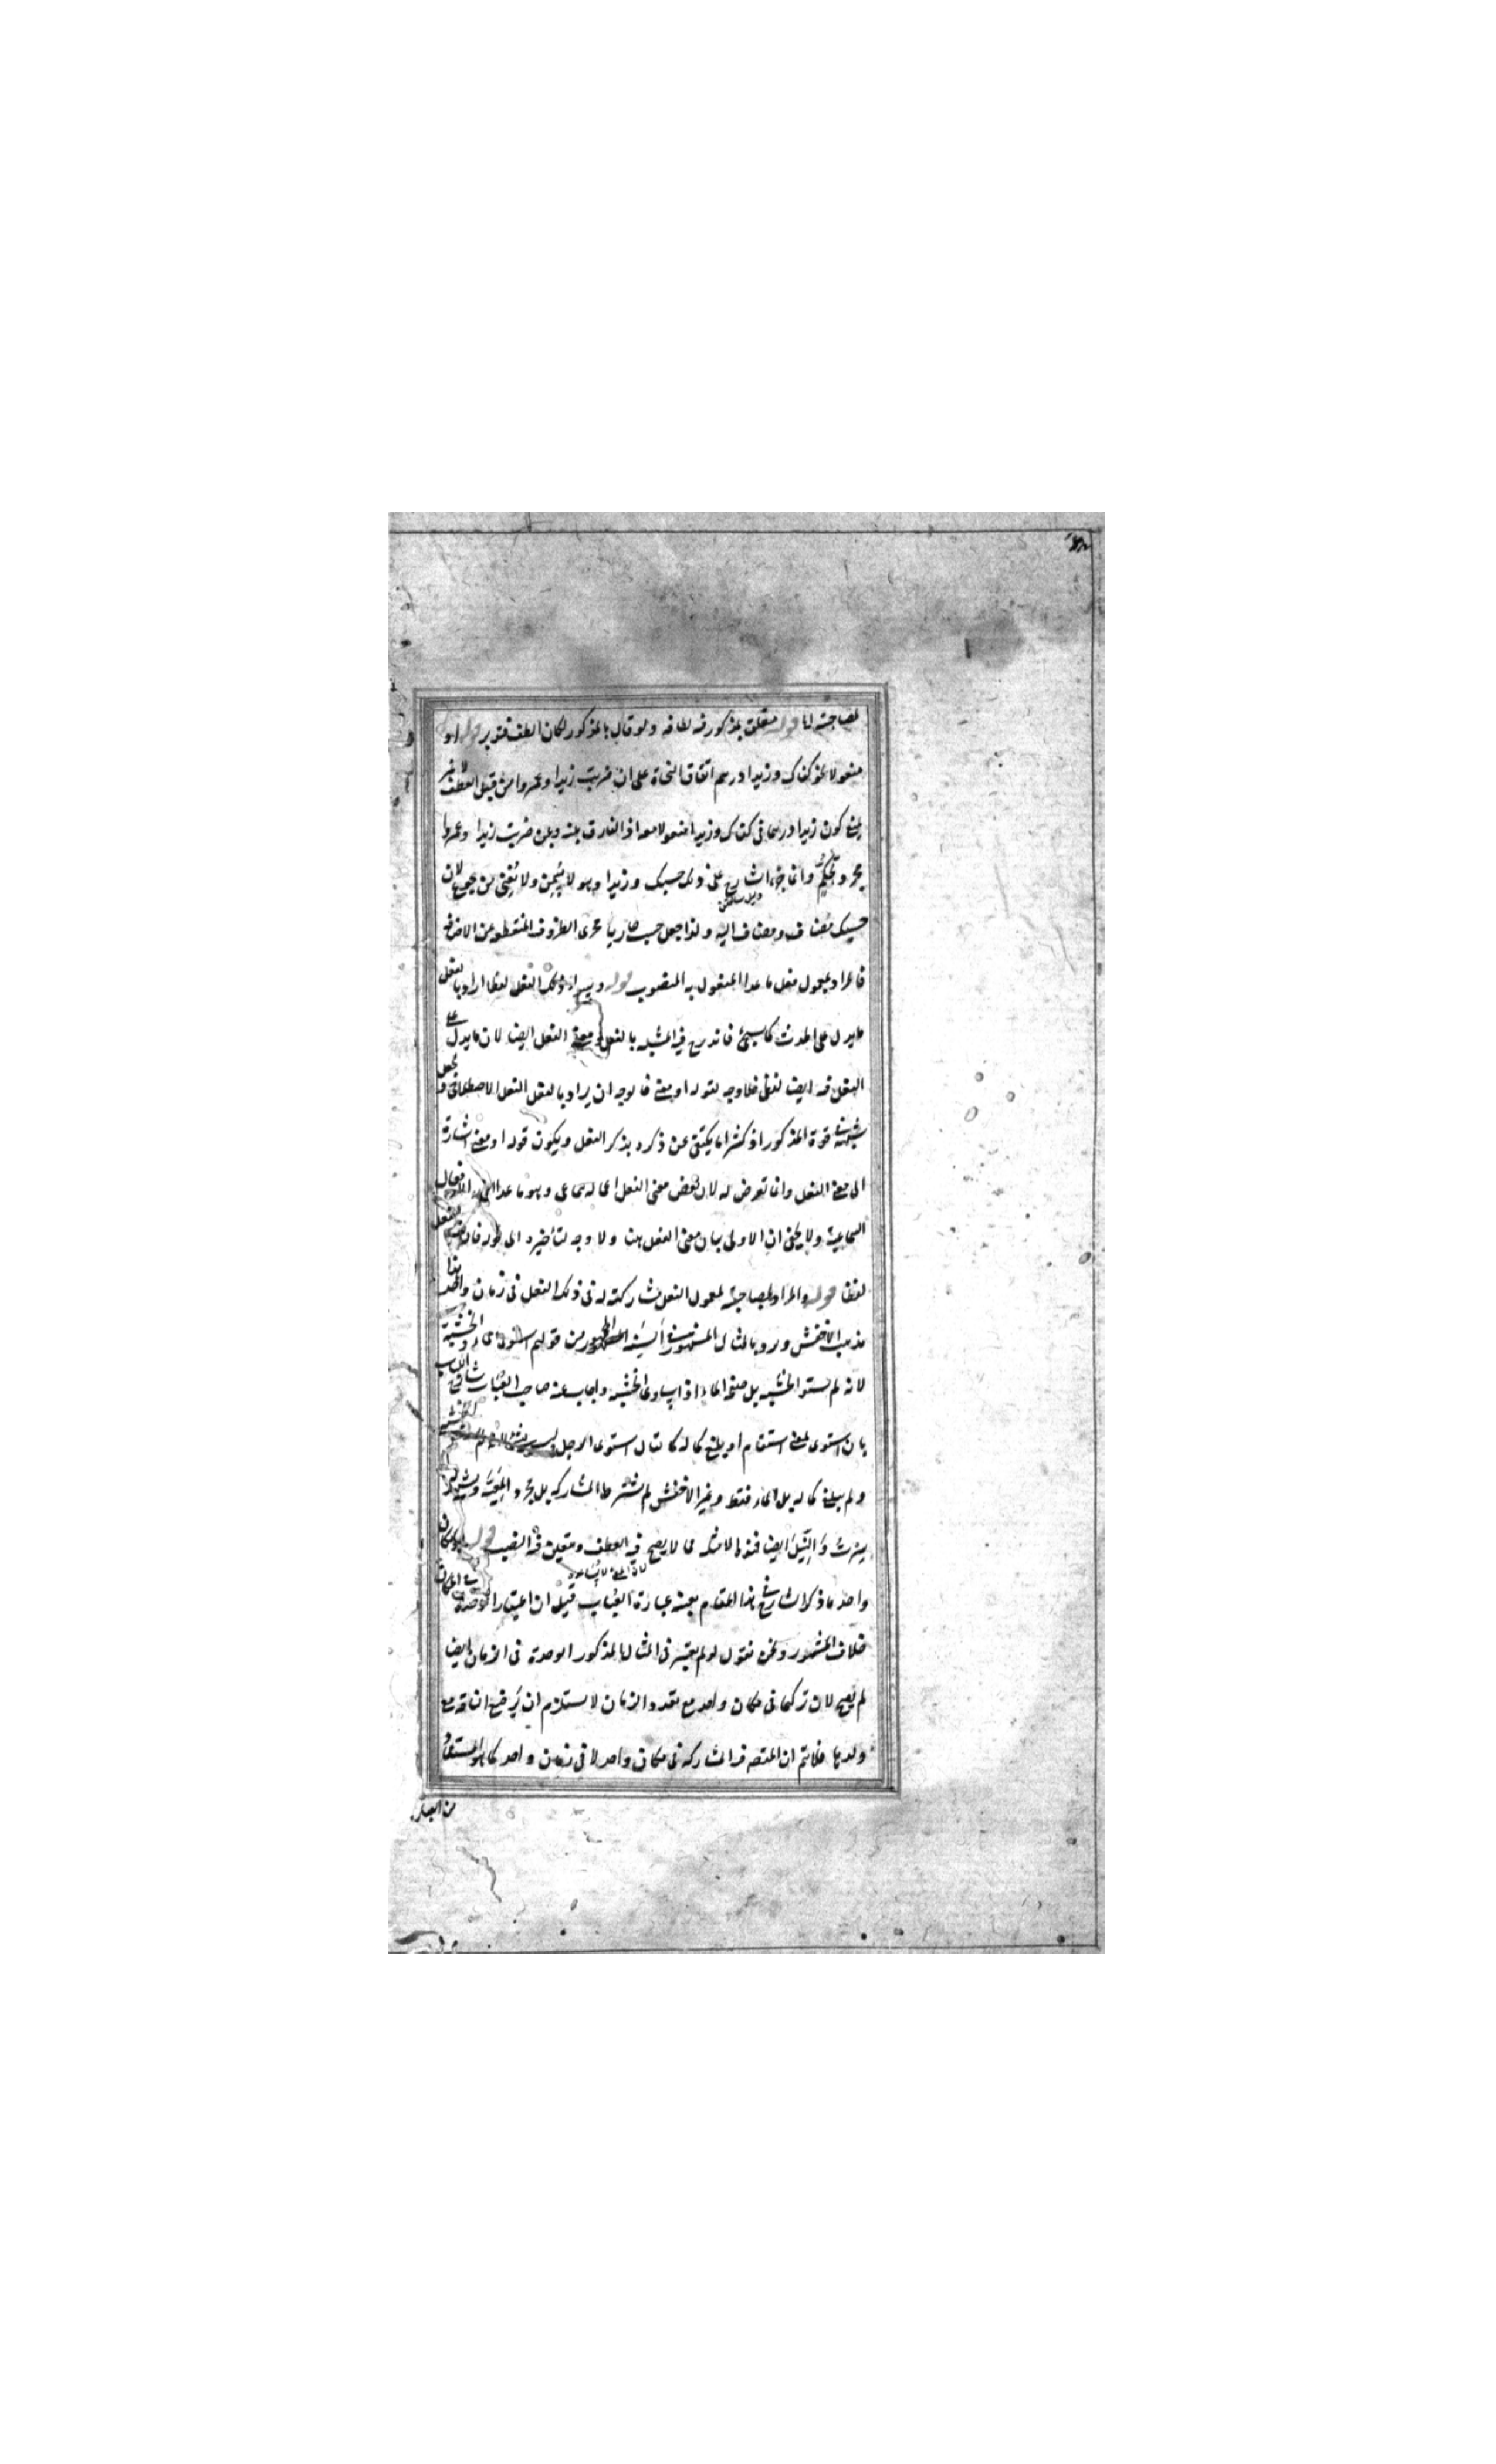 لمصاحبة اما قوله متعلق بمذكور فيه لطافة ولو قال بالمذكور لكان الطف فتدبر قوله او
مفعولا نحو كفاك وزيدا درهم اتفاق النحاة على ان ضربت زيدا وعمروا من قبيل العطف لا غير
يمنع كون زيدا درهما في كفاك وزيدا مفعولا معه اذ الفارق بينه وبين ضربت زيدا وعمروا
مجرد تحكم وانما الشارح على ذلك حسبك وزيدا وهو لا يسمن ولا يغني من جوع لان
حسبك مضاف ومضاف اليه ولذا جعل حسب جاريا مجرى الظروف المنقطعة عن الاضافة
فالمراد بمعمول فعل ما عدا المفعول به المنصوب قوله وسواء كان ذلك الفعل لفظا اراد بالفعل
ما يدل على الحدث كما سيجئ فاندرج فيه المشبه بالفعل ومعنى الفعل ايضا لان ما يدل على
الفعل فيه ايضا لفظي فلا وجه لقوله او معنى فالوجه ان يراد بالفعل الفعل الاصطلاحي وجعل
شبهه في قوة المذكور اذ كثيرا ما يكتفى عن ذكره بذكر الفعل ويكون قوله او معنى اشارة
الى معنى الفعل وانما تعرض له لان بعض معنى الفعل اعماله سماعي وهو ما عدا اسماء الافعال
السماعية ولا يخفى ان الاولى بيان معنى الفعل هنا ولا وجه لتأخيره الى قوله فان كان الفعل
لفظا قوله والمراد بمصاحبته لمعمول الفعل مشاركته له في ذلك الفعل في زمان واحد هذا
مذهب الاخفش ورد بالمثال المشهور في السنة الجمهور من قولهم استوى الماء والخشبة
لانه لم يستو الخشبة بل صفو الماء اذا ساوى الخشبة واجاب عنه صاحب العباب شارح اللباب
بان استوى بمعنى استقام او بلغ كماله كما تقال استوى الرجل
ولم يبلغ كماله بل الماء فقط وغير الاخفش لم يشترط المشاركة بل مجرد المعية
سرت والنيل ايضا فهذه الامثلة مما لا يصح فيه العطف ومتعين فيه النصب قوله او مكان
واحد ما ذكر الشارح في هذا المقام بعينه عبارة العباب قيل ان اعتبار الوحدة في المكان
خلاف المشهور ونحن نقول لو لم يعتبر في المثال المذكور الوحدة في الزمان ايضا
لم يصح لان تركها في مكان واحد مع تعدد الزمان لا يستلزم ان يرضع الناقة مع
ولدها فلا يتم ان المقصد فيه المشاركة في مكان واحد لا في زمان واحد كما هو المستفاد
من العبارة